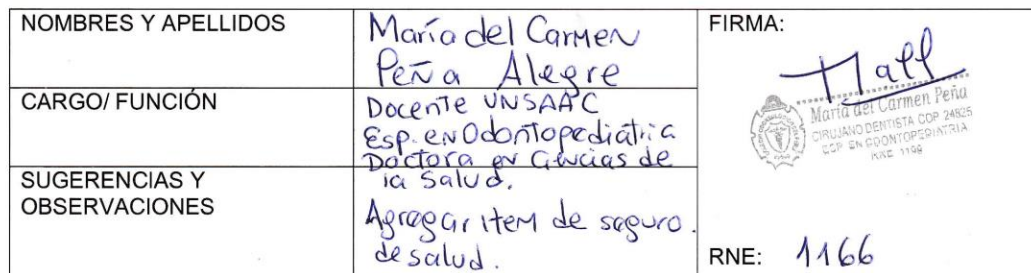 NOMBRES Y APELLIDOS
María del Carmen
Peña Alegre
FIRMA:
María del Carmen Peña
CIRUJANO DENTISTA COP 24825
ESP EN ODONTOPEDIATRIA
CARGO/ FUNCIÓN
Docente UNSAAC
Esp. en Odontopediatria
Doctora en Ciencias de
la Salud.
SUGERENCIAS Y
OBSERVACIONES
Agregar item de seguro.
de salud.
RNE: 1166